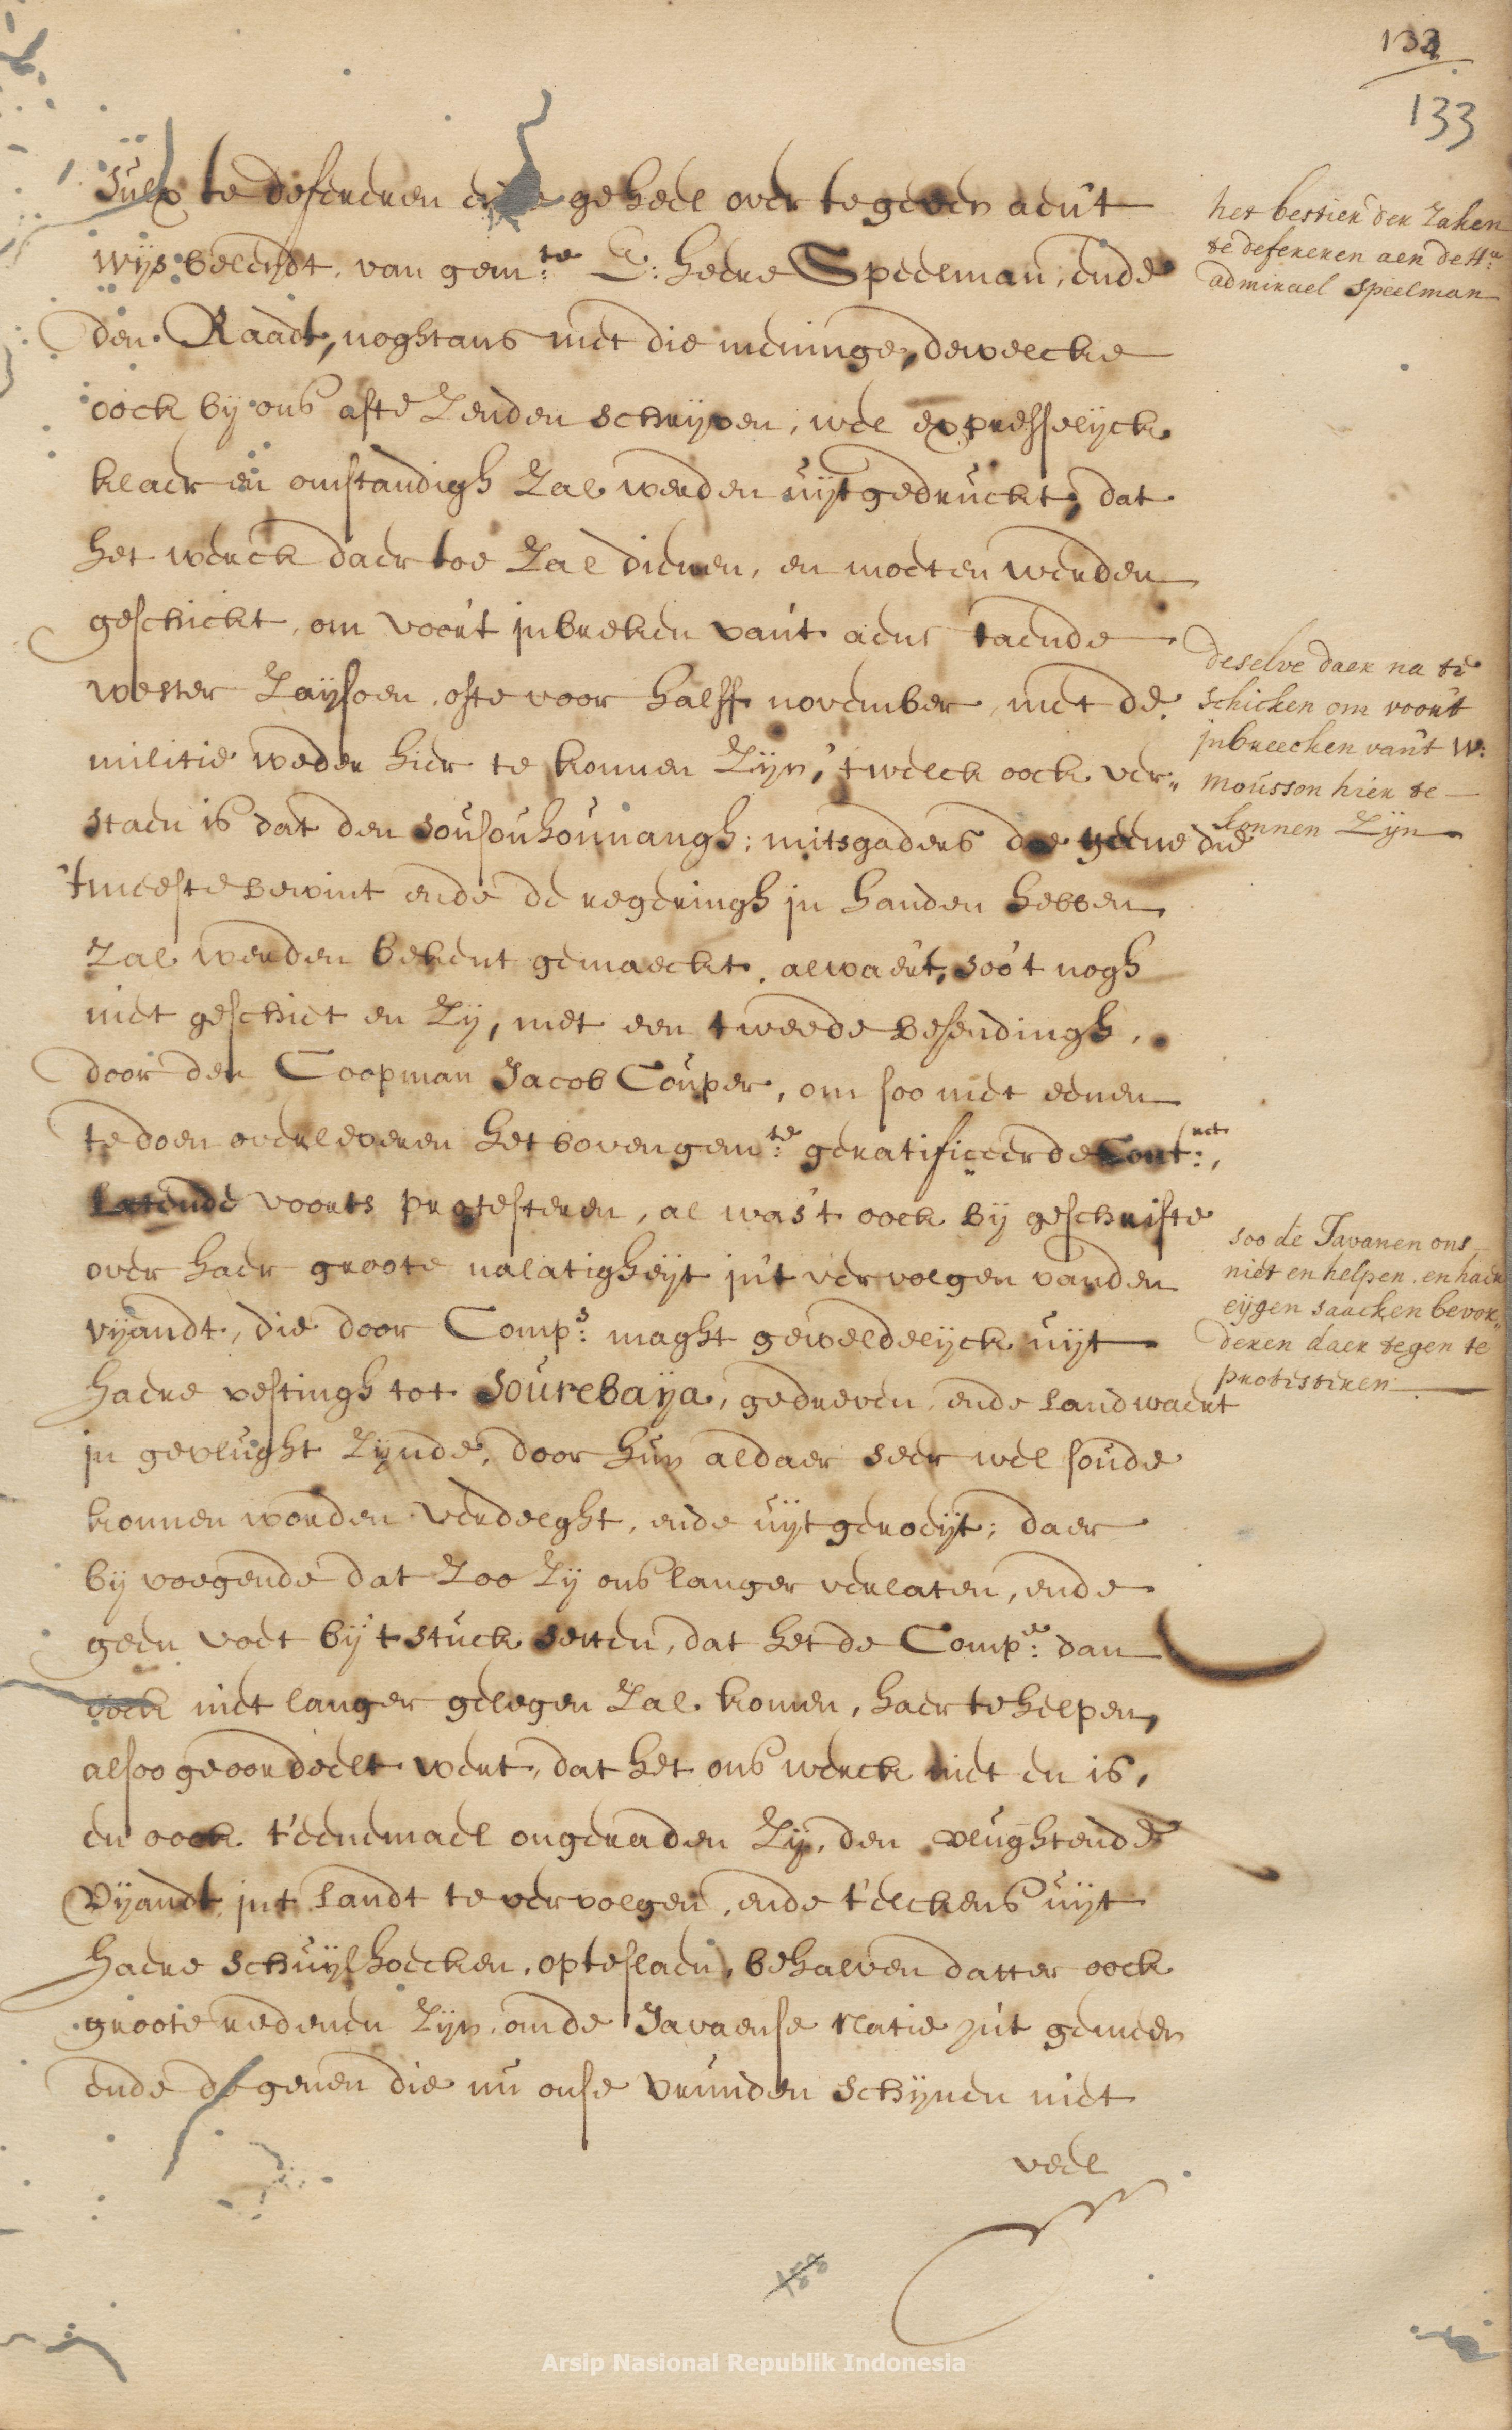 132
133
Sulx te defereren ende geheel over te geven aen't
wijs beleijdt, van gem:te E: heere Speelman, ende
den Raadt, noghtans met die meninge, dewelcke
oock bij ons afte zenden schrijven, wel expresselijck
klaer en omstandigh zal werden uijtgedruckt, dat
het werck daer toe zal dienen, en moeten werden
geschickt, om voor't inbreken van't aens taende
wester Zaijsoen, ofte voor halff november, met de
militie weder hier te konnen zijn, 'twelck oock ver„
staen is dat den Sousouhounangh; mitsgaders de geene die
'tmeeste bewint ende de regeringh in handen hebben
zal werden bekent gemaeckt, alwaer't, soo't nogh
niet geschiet en zij, met een tweede besendingh,
door den Coopman Jacob Couper, om soo met eenen
te doen overleveren het bovengem:te geratificeerde Cont:ract,
latende voorts protesteren, al was't oock bij geschrifte
over haer groote nalatigheijt in't vervolgen vanden
vijandt, die door Comp:s maght geweldelijck uijt
haere vestingh tot Sourebaija, gedreven, ende landwaert
in gevlught zijnde, door hun aldaer seer wel soude
konnen worden verdelght, ende uijtgeroeijt; daer
bij voegende dat zoo zij ons langer verlaten, ende
geen voet bij't stuck setten, dat het de Comp:e dan
oock niet langer gelegen zal komen, haer te helpen,
alsoo geoordeelt wert, dat het ons werck niet en is,
en oock t'eenemael ongeraden zij, den vlughtende
vijandt in't landt te vervolgen, ende t'elckens uijt
haere schuijlhoecken, op te slaen, behalven datter oock
groote redenen zijn, om de Javaense Natie in't gemeen
ende de geenen die nu onse vrunden schijnen niet
veel
het bestier der zaken
te defereren aen de Hr
admirael Speelman
deselve daer na te
schicken om voor't
inbreecken van't W:
mousson hier te
konnen zijn
soo de Javanen ons
niet en helpen, en haer
eijgen saacken bevor„
deren daer tegen te
protesteren
188
Arsip Nasional Republik Indonesia